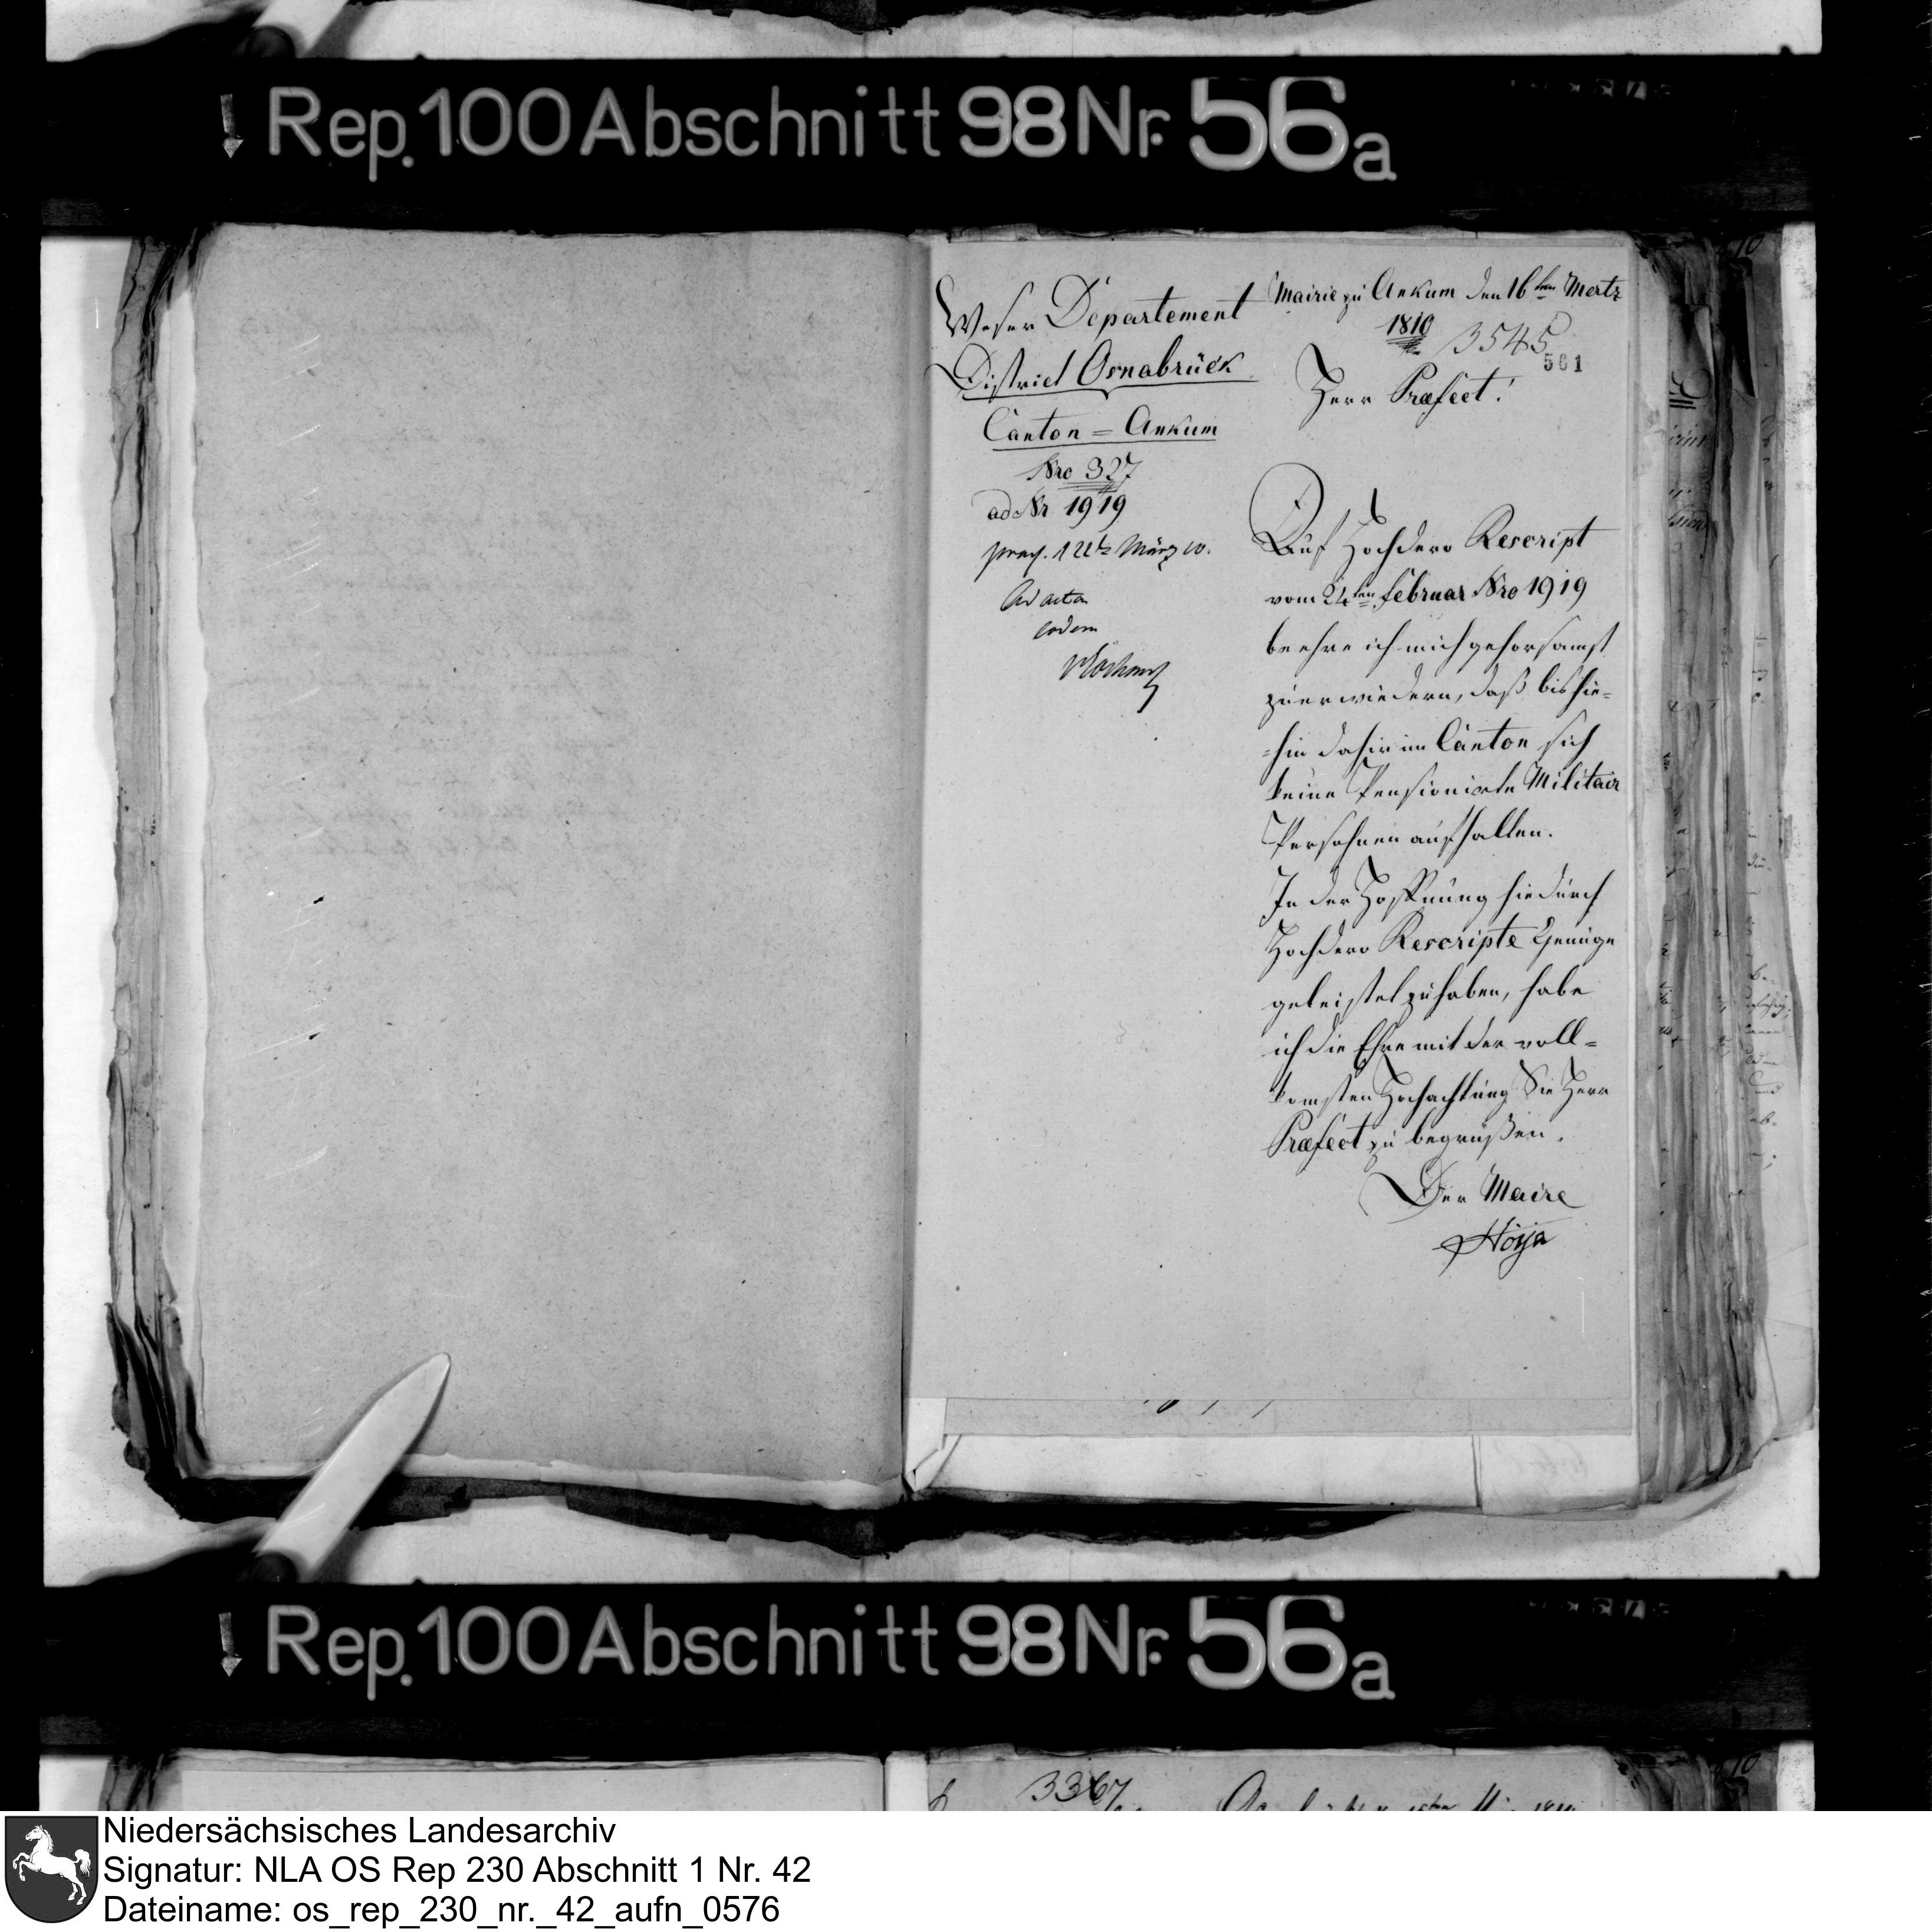 Rep. 100 Abschnitt 98 Nr. 56a
Weser Departement
District Osnabrück
Canton = Ankum
Nro 327
ad Nr 1919
März 10.
Ad acta
eodem
Mairie zu Ankum den 16ten Mertz
1810
3545
561
Herr Præfect!
Auf Hochdero Rescript
vom 24ten Februar Nro 1919
beehre ich mich gehorsamst
zu erwiedern, daß bis hie=
=hin dahir im Canton sich
keine Pensionirte Militair
Persohnen aufhalten.
In der Hoffnung hiedurch
Hochdero Rescripte Genüge
geleistet zu haben, habe
ich die Ehre mit der voll=
komsten Hochachtung Sie Herr
Præfect zu begrüßen.
Der Maire
Höya
Rep. 100 Abschnitt 98 Nr. 56a
3367
Niedersächsisches Landesarchiv
Signatur: NLA OS Rep 230 Abschnitt 1 Nr. 42
Dateiname: os_rep_230_nr._42_aufn_0576